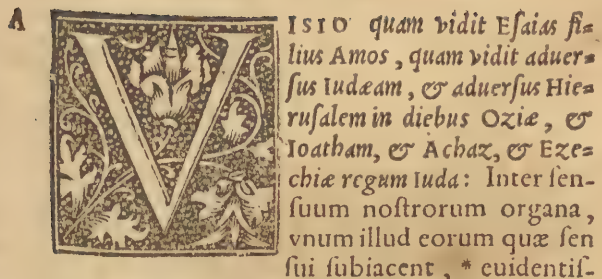 A
VISIO quam vidit Esaias fi=
lius Amos, quam vidit aduer=
ſus Iudæam, & aduerſus Hie=
ruſalem in diebus Oziæ, &
Ioatham, & Achaz, & Eze=
chiæ regum Iuda: Inter ſen-
ſuum noſtrorum organa,
vnum illud eorum quæ ſen
ſui ſubiacent, * euidentiſ-